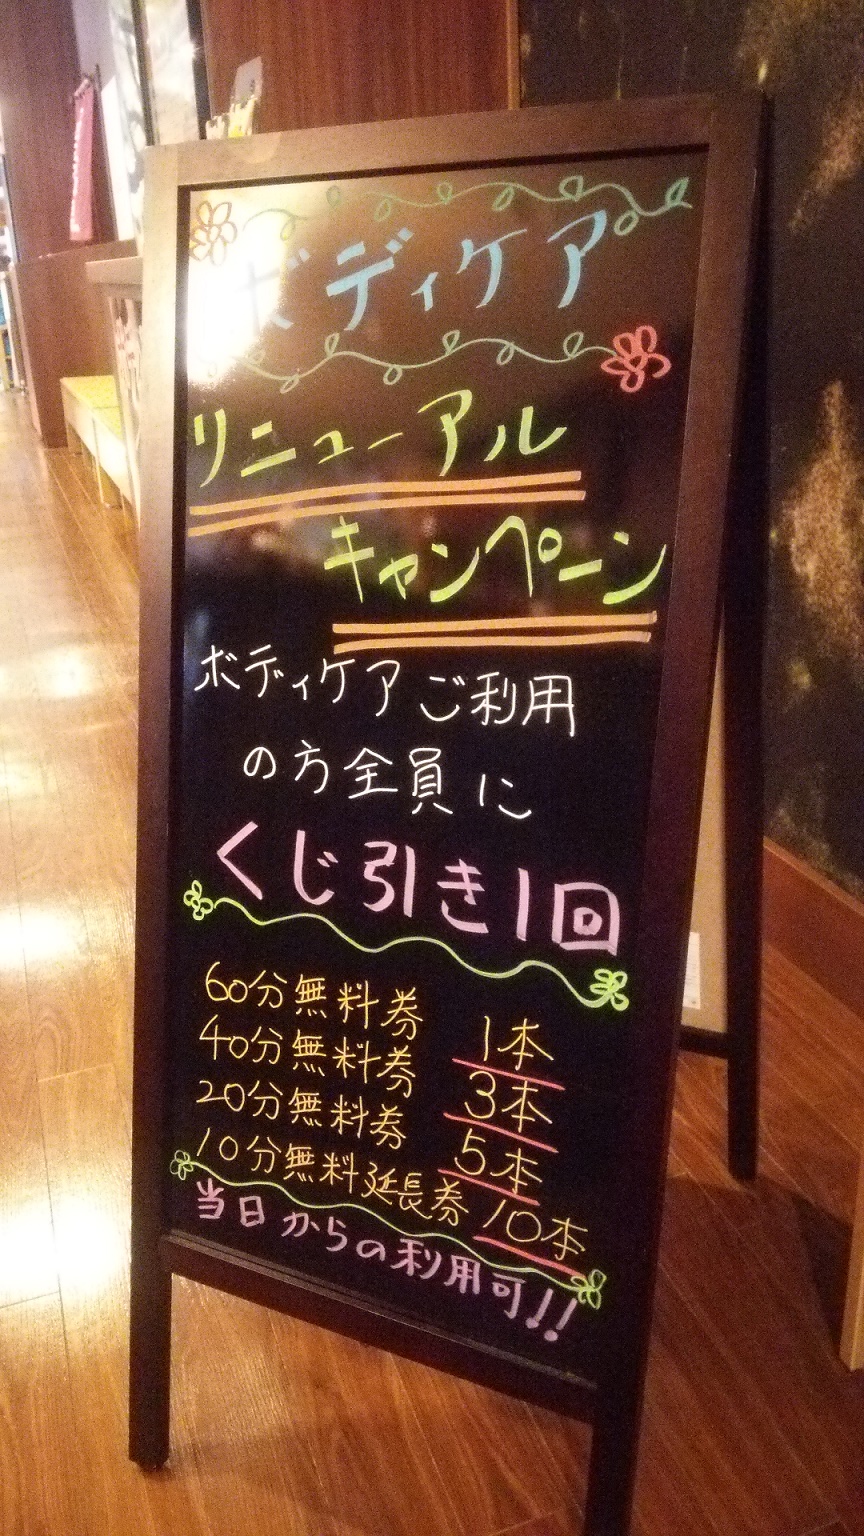 ボディケア
リニューアル
キャンペーン
ボディケアご利用
の方全員に
くじ引き1回
60分無料券 1本
40分無料券 3本
20分無料券 5本
10分無料延長券 10本
当日からの利用可!!